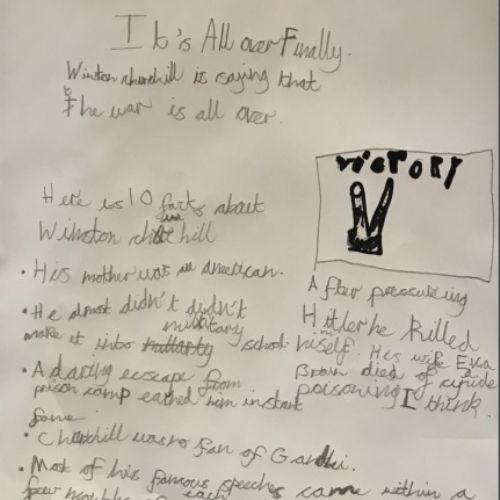 It's All over Finally.
Winston churchill is saying that
The war is all over.
VICTORY
Here is 10 facts about
Winston chuchill
• His mother was an American.
• He almost didn't didn't
make it into military school.
• A daring ecscape from
prison camp earned him instant
fame.
• Churchill was no fan of Gandhi.
• Most of his famous speeches came within a
few months of each
After pressureing
Hitler he killed
himself. His wife Eva
Braun died of cynide
poisoning I think.